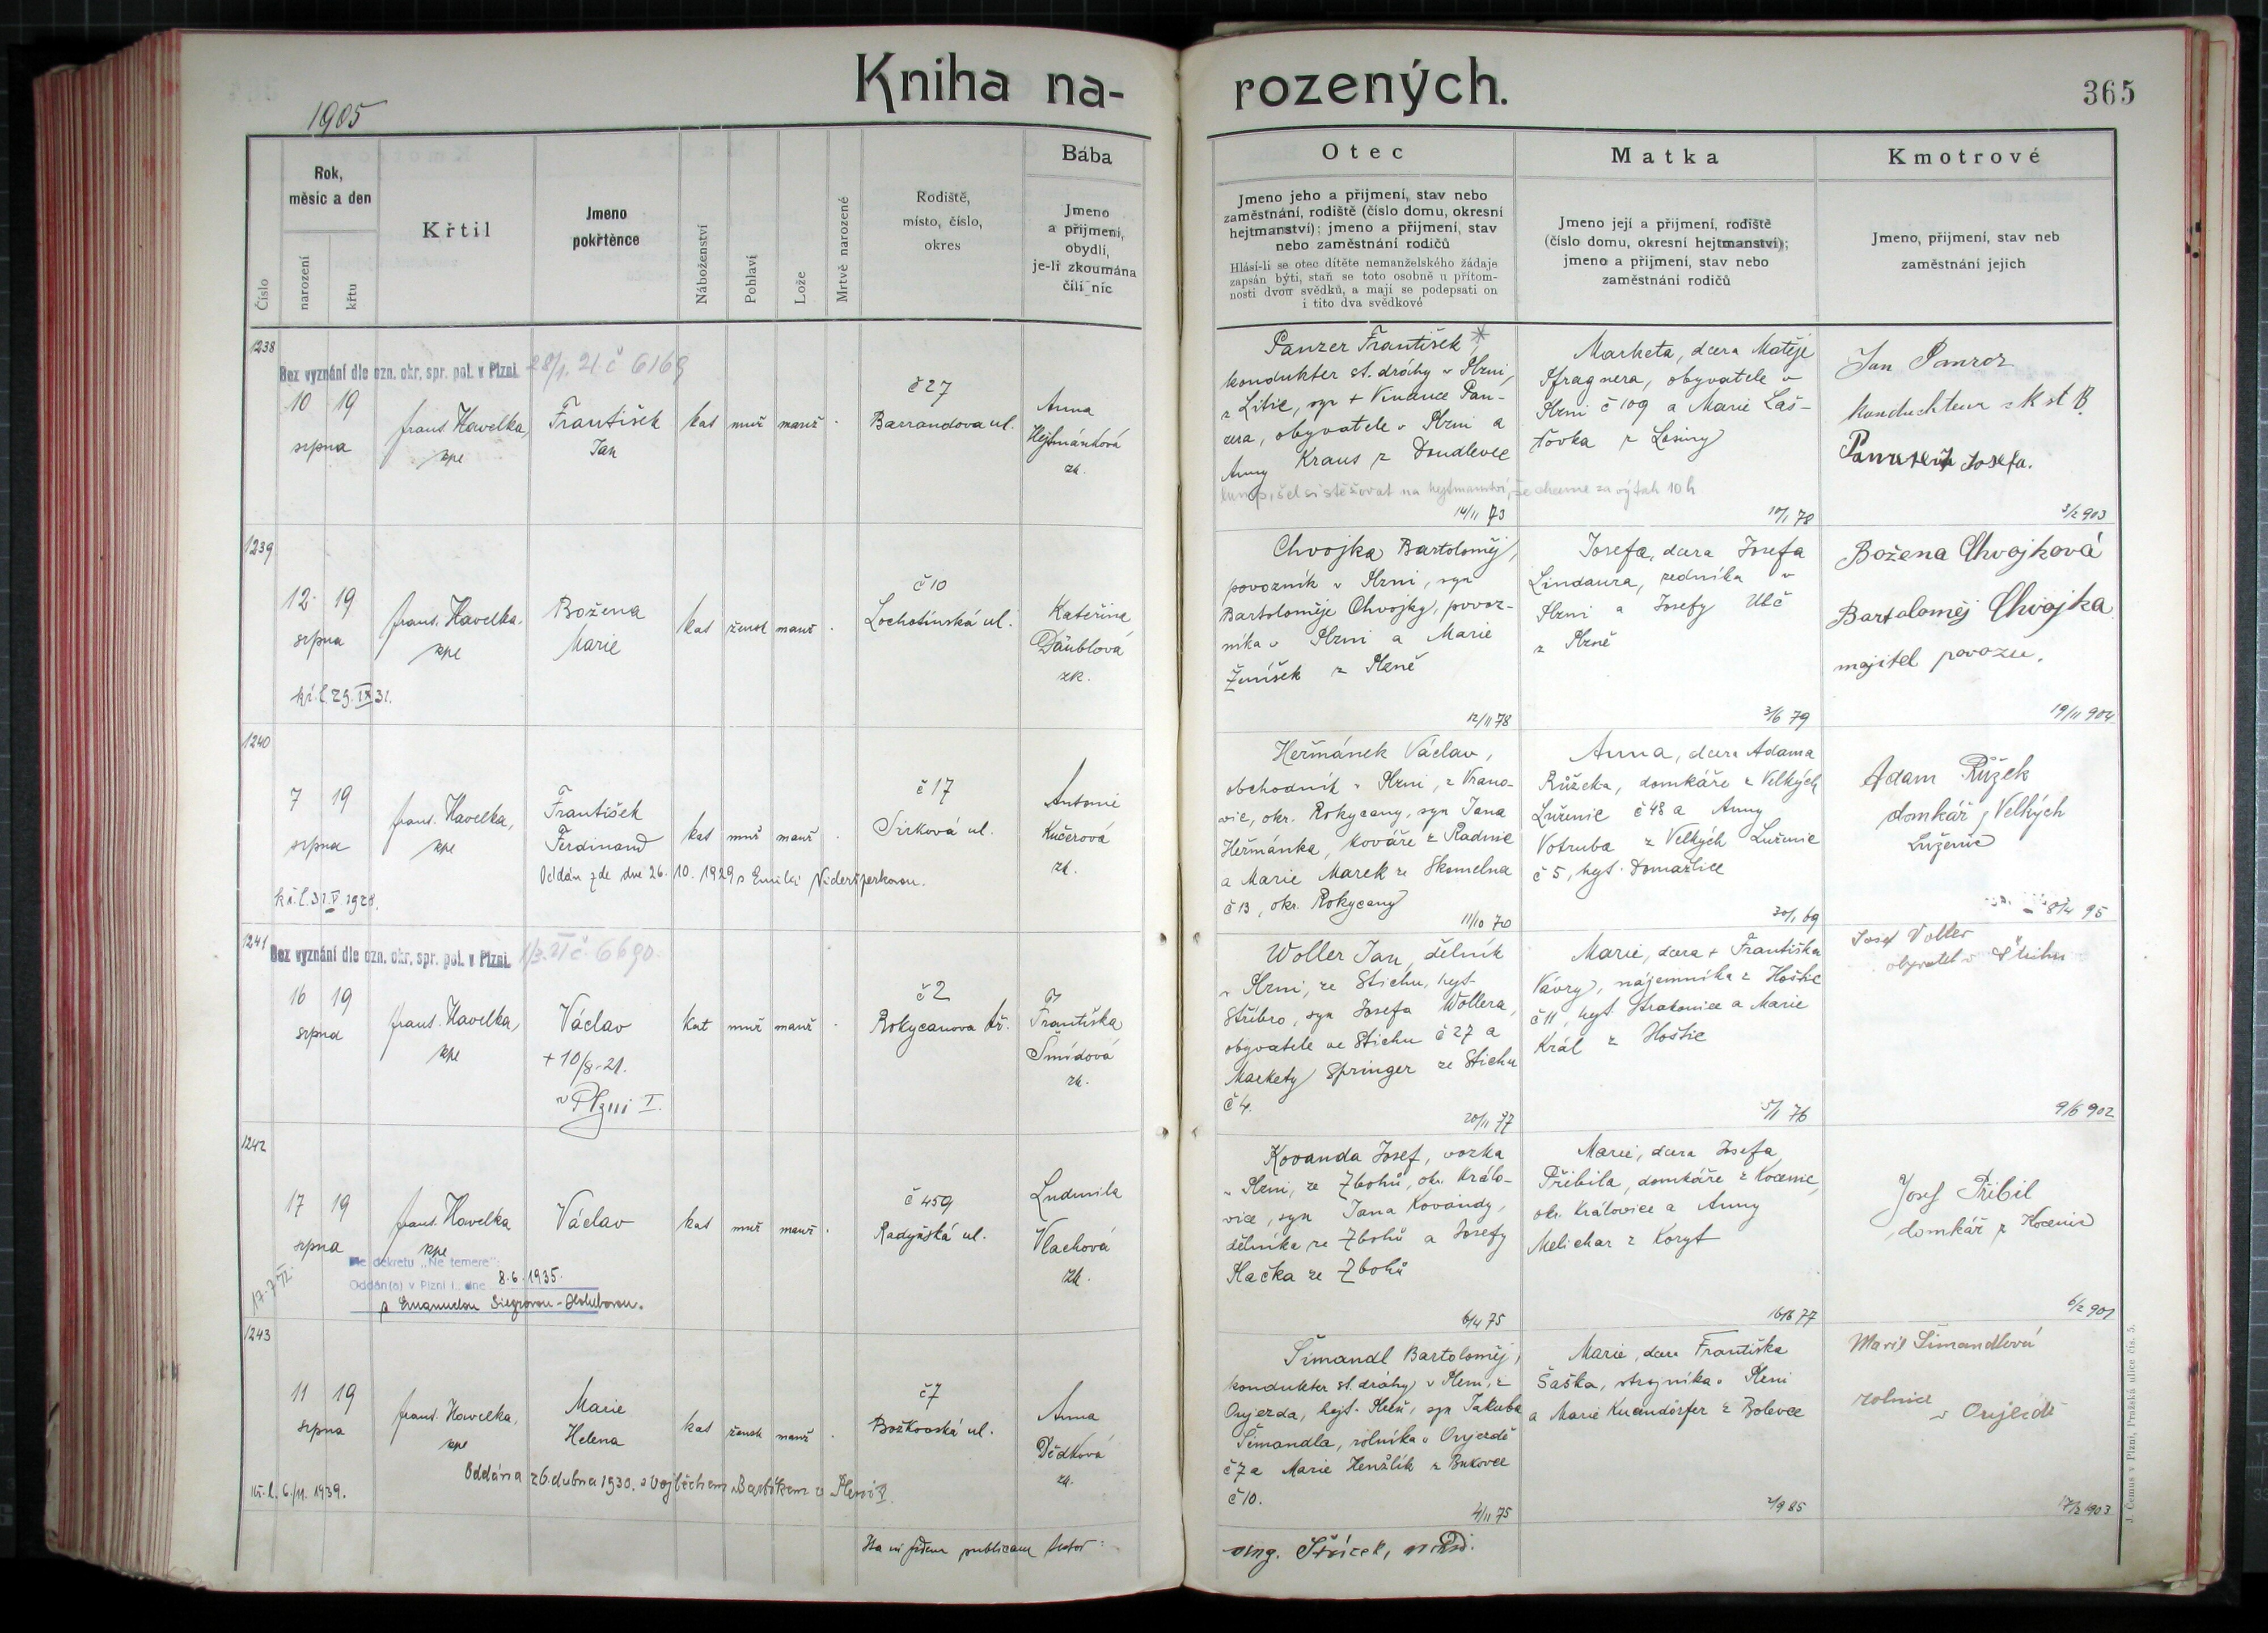 Kniha na-
rozených.
365
1905
Číslo
Rok,
měsíc a den
narození
křtu
Křtil
Jmeno
pokřtěnce
Náboženství
Pohlaví
Lože
Mrtvě narozené
Rodiště,
místo, číslo,
okres
Bába
Jmeno
a přijmení,
obydlí,
je-li zkoumána
čili nic
Otec
Jmeno jeho a přijmení, stav nebo
zaměstnání, rodiště (číslo domu, okresní
hejtmanství); jmeno a přijmení, stav
nebo zaměstnání rodičů
Hlásí-li se otec dítěte nemanželského žádaje
zapsán býti, staň se toto osobně u přítom-
nosti dvou svědků, a mají se podepsati on
i tito dva svědkové
Matka
Jmeno její a přijmení, rodiště
(číslo domu, okresní hejtmanství);
jmeno a přijmení, stav nebo
zaměstnání rodičů
Kmotrové
Jmeno, přijmení, stav neb
zaměstnání jejich
1238
Bez vyznání dle ozn. okr. spr. pol. v Plzni 28/1. 21 č 6169
10 19
srpna
frant. Havelka,
kpe
František
Jan
kat muž manž
č 27
Barrandova ul.
Anna
Hejtmánková
zk.
Panzer František
kondukter st. dráhy v Plzni,
z Litic, syn + Vincence Pan-
cera, obyvatele v Plzni a
Anny Kraus z Doudlevec
šel si stěžovat na hejtmanství, že chceme za výtah 10 h
14/11 73
Marketa, dcera Matěje
Pfragnera, obyvatele v
Plzni č 109 a Marie Laš-
tovka z Losiny
10/1 78
Jan Panzer
Kondukteur K st B
Josefa.
3/2 903
1239
12 19
srpna
kř. l. 25. IX 31.
frant. Havelka,
kpe
Božena
Marie
kat žensk manž
č 10
Lochotínská ul.
Kateřina
Däublová
zk.
Chvojka Bartoloměj,
povozník v Plzni, syn
Bartoloměje Chvojky, povoz-
níka v Plzni a Marie
Ženíšek z Plzně
12/11 78
Josefa, dcera Josefa
Lindaura, zedníka v
Plzni a Josefy Ulč
z Plzně
3/6 79
Božena Chvojková
Bartoloměj Chvojka
majitel povozu.
19/11 904
1240
7 19
srpna
kř. l. 31. V. 1928.
frant. Havelka,
kpe
František
Ferdinand
Oddán zde dne 26. 10. 1929 s Emilií Nideršperkovou.
kat muž manž
č 17
Sirková ul.
Antonie
Kučerová
zk.
Heřmánek Václav,
obchodník v Plzni, z Vrano-
vic, okr. Rokycany, syn Jana
Heřmánka, kováře z Radnic
a Marie Marek ze Skomelna
č 13, okr. Rokycany
11/10 70
Anna, dcera Adama
Růžeka, domkáře z Velkých
Luženic č 48 a Anny
Votruba z Velkých Luženic
č 5, hejt. Domažlice
30/1 69
Adam Růžek
domkář z Velkých
Luženic
8/4 95
1241
Bez vyznání dle ozn. okr. spr. pol. v Plzni 1/3. 21 č. 6690
16 19
srpna
frant. Havelka,
kpe
Václav
+ 10/8. 21.
v Plzni I.
kat muž manž
č 2
Rokycanova tř.
Františka
Šmídová
zk.
Woller Jan, dělník
v Plzni, ze Stichu, hejt.
Stříbro, syn Josefa Wollera,
obyvatele ve Stichu č 27 a
Markety Springer ze Stichu
č 4.
20/11 77
Marie, dcera + Františka
Vávry, nájemníka z Hoštic
č 11, hejt. Strakonice a Marie
Král z Hoštic
5/1 76
Josef Voller
obyvatel v Štichu
9/6 902
1242
17 19
srpna
frant. Havelka
kpe
Dle dekretu „Ne temere"
Oddán(a) v Plzni I., dne 8. 6. 1935.
s Emanuelou Siegrovou-Holubovou.
Václav
kat muž manž
č 459
Radyňská ul.
Ludmila
Vlachová
zk.
Kovanda Josef, vozka
v Plzni, ze Zbohů, okr. Králo-
vice, syn Jana Kovandy,
dělníka ze Zbohů a Josefy
Plačka ze Zbohů
6/4 75
Marie, dcera Josefa
Přibila, domkáře z Kocenic,
okr. Královice a Anny
Melichar z Koryt
16/6 77
Josef Přibil
domkář z Kocenic
6/2 901
1243
11 19
srpna
kř. l. 6./11. 1939.
frant. Havelka,
kpe
Marie
Helena
Oddána 26. dubna 1930. s Vojtěchem Bartůškem v Plzni
kat žensk manž
č 7
Božkovská ul.
Anna
Dědková
zk.
Šimandl Bartoloměj,
kondukter st. dráhy v Plzni, z
Oujezda, hejt. Plzeň, syn Jakuba
Šimandla, rolníka v Oujezdě
č 7 a Marie Henžlík z Bukovce
č 10.
4/11 75
Marie, dcera Františka
Šaška, strojníka v Plzni
a Marie Kuendörfer z Bolevce
2/9 85
Marie Šimandlová
rolnice v Oujezdě
17/2 1903
Ita in fidem publicam testor:
Mg. Štícel,
J. Čemus v Plzni, Pražská ulice čís. 5.